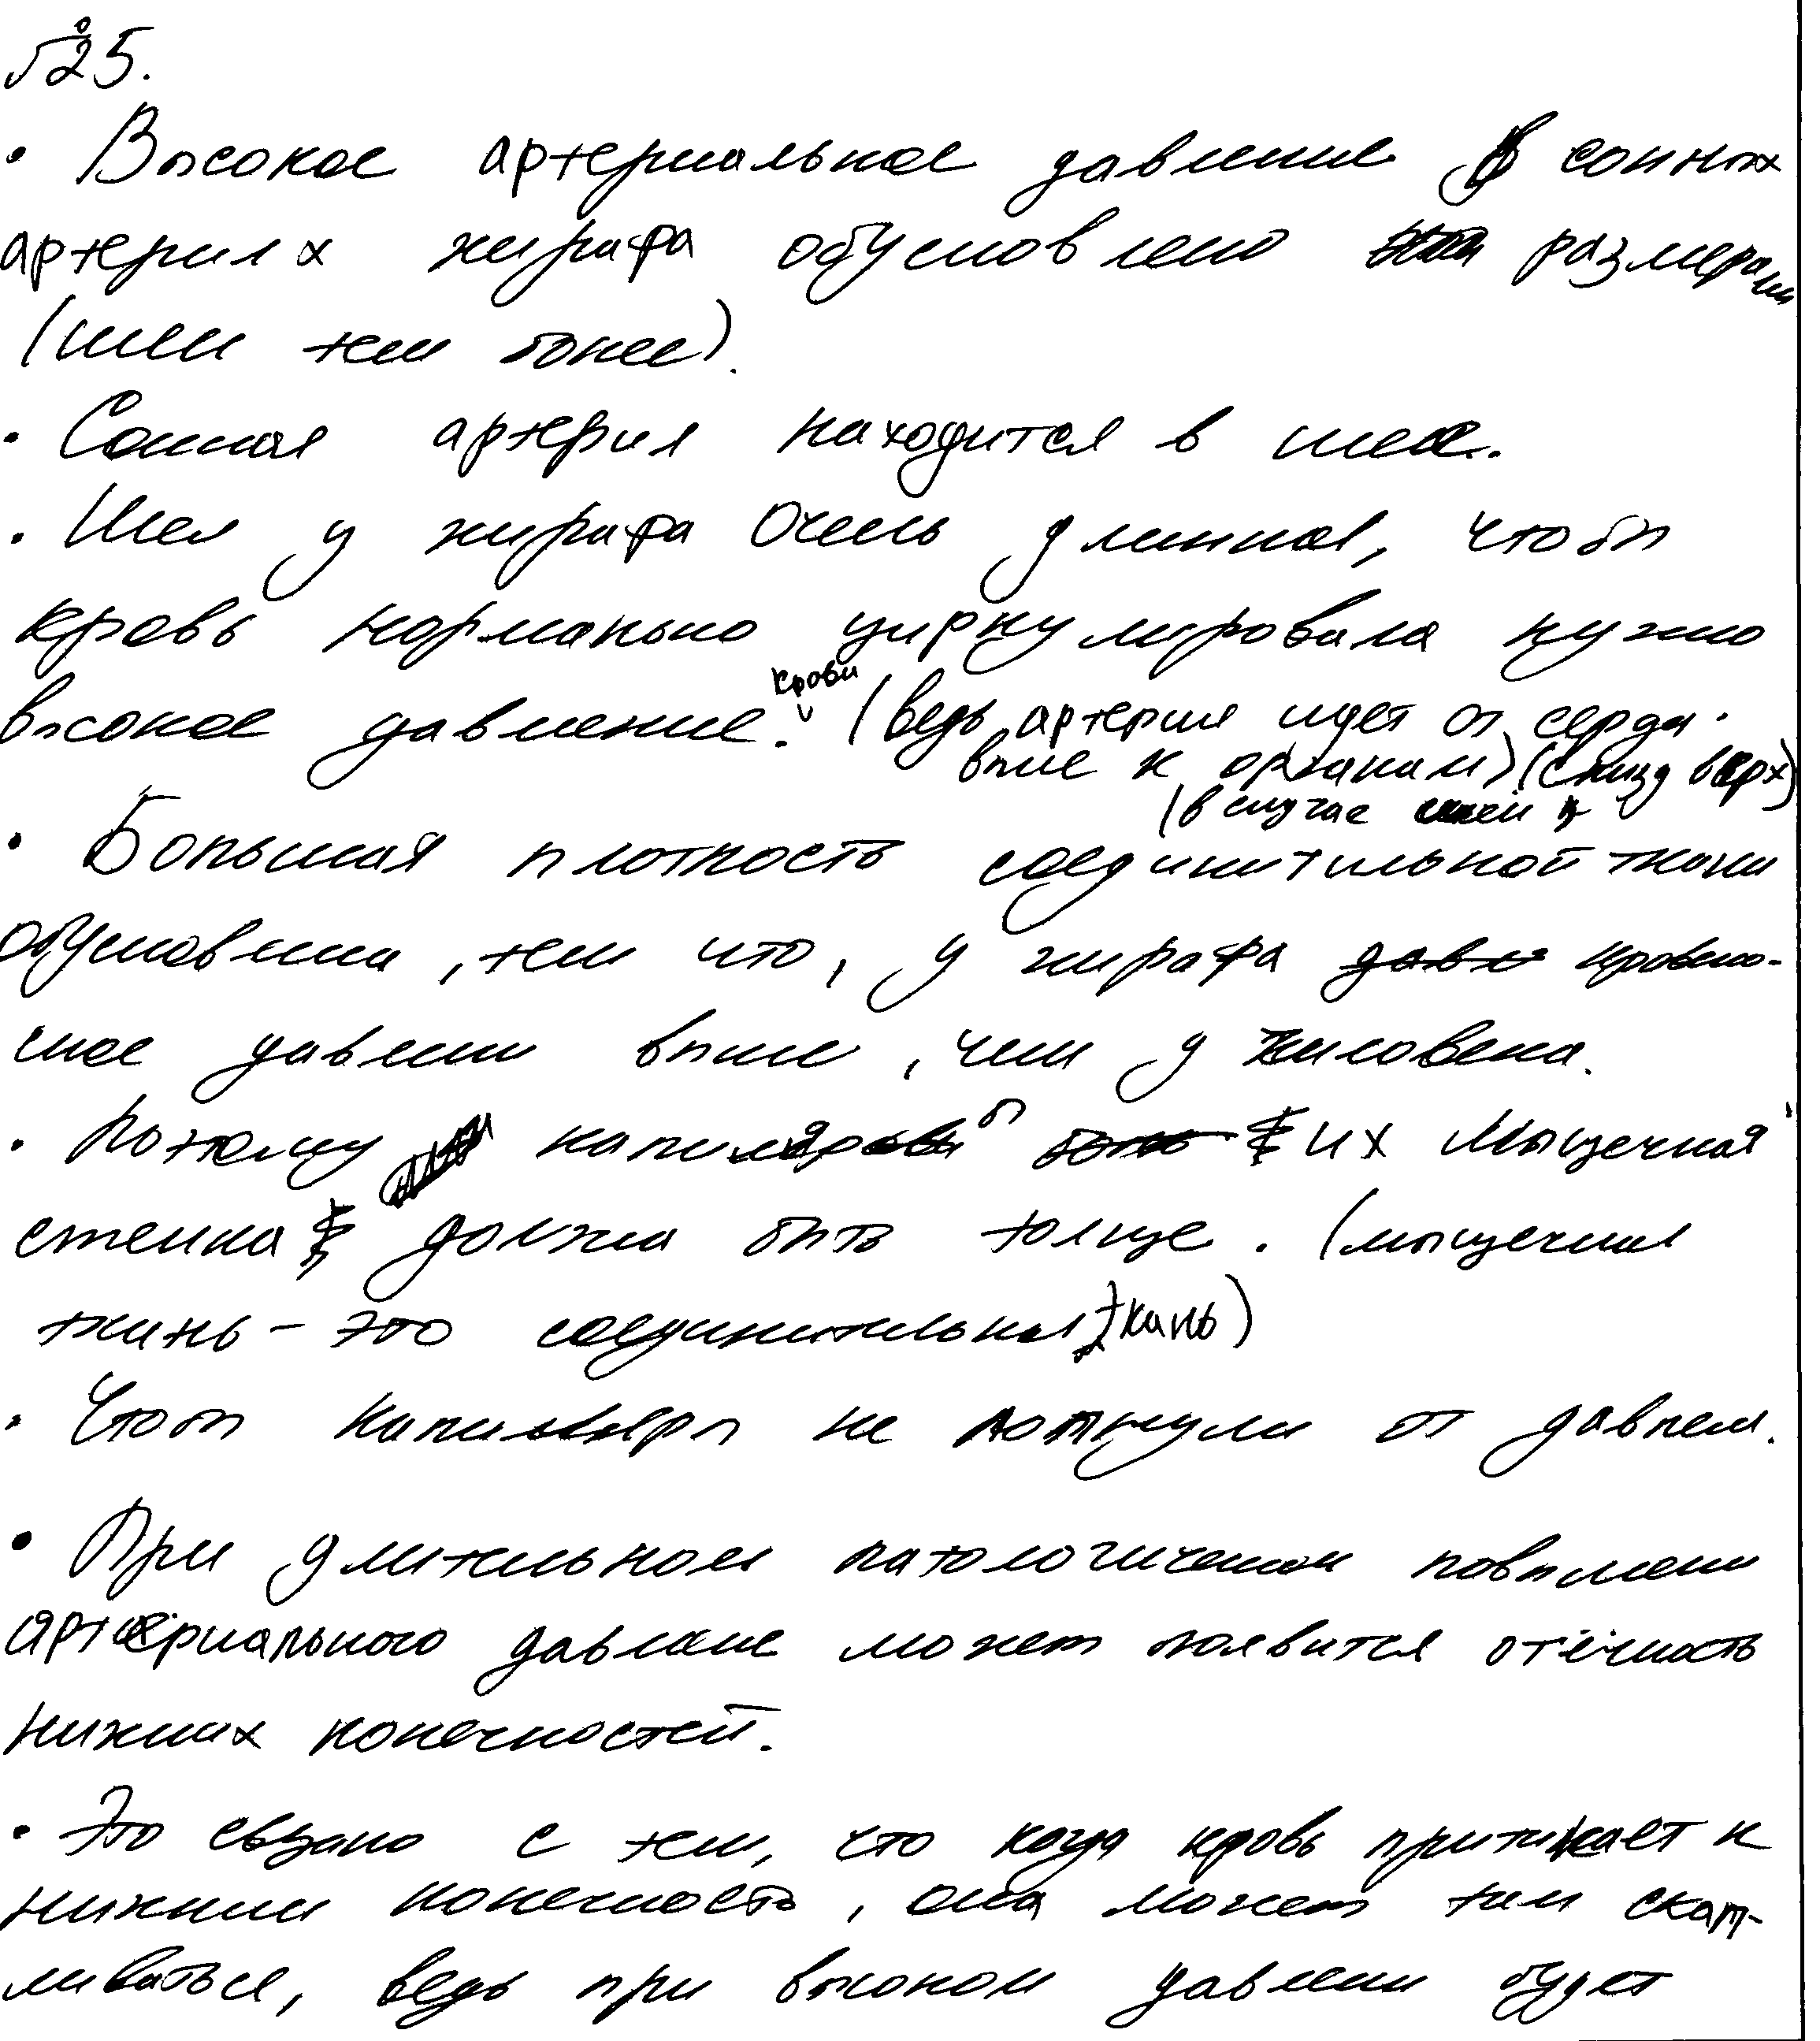 №25.
• Высокое артериальное давление в сонных
артериях жирафа обусловлено размерами
(шеи тем более).
• Сонная артерия находится в шее.
• Шея у жирафа очень длинная, чтобы
кровь нормально циркулировала нужно
высокое давление крови. (ведь артерия идет от серда
выше к органам) (снизу вверх)
(в случае шеи
• Большая плотность соединительной ткани
обусловлена, тем что, у жирафа кровено-
сное давлени выше, чем у человека.
• Потому капиляры их мышечная
стенка должна быть толще. (мышечная
ткань - это соединительная ткань)
• Чтобы капиляры не лопнули от давлен.
• При длительном патологическом повышени
артериального давлние может появится отёчность
нижних конечностей.
• Это связано с тем, что когда кровь притикает к
нижним конечность, она может там скап-
ливаться, ведь при высоком давлени будет